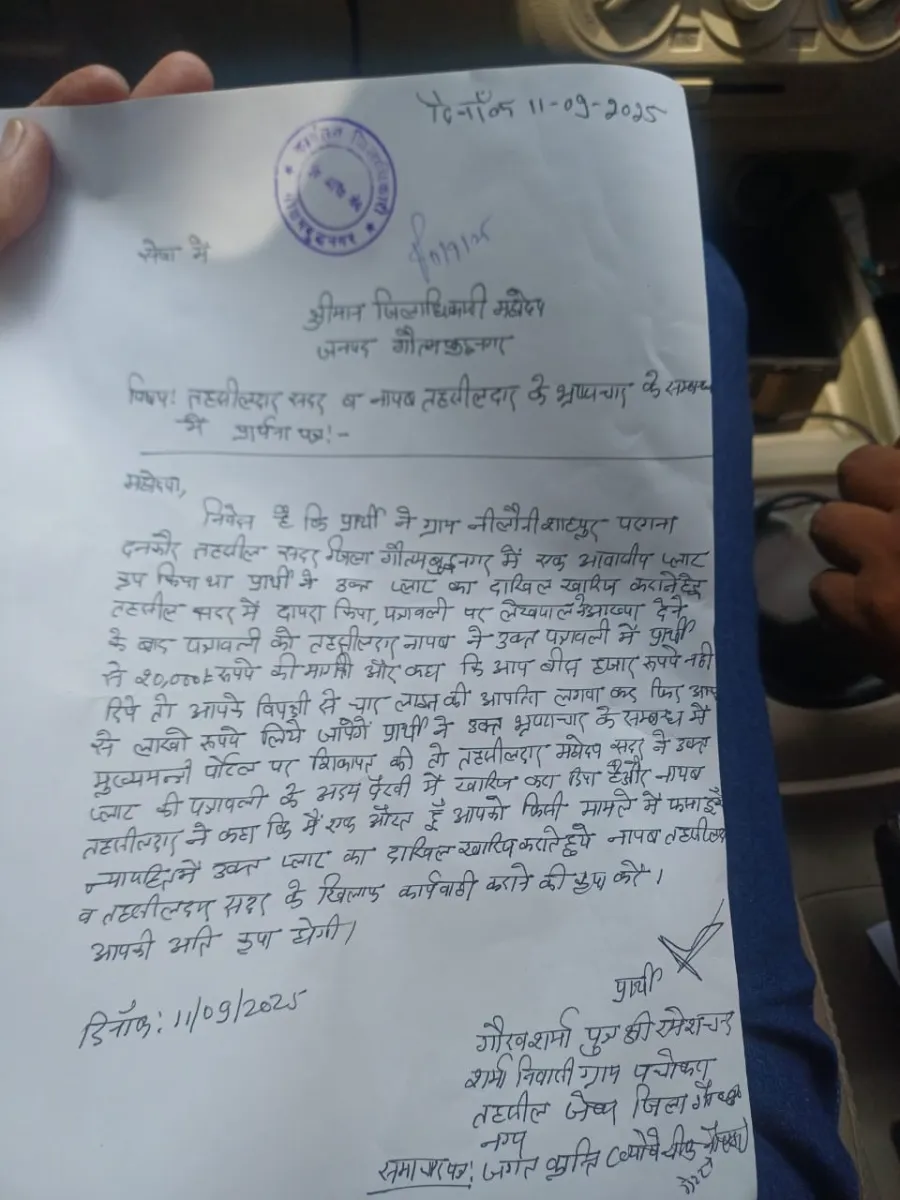 दिनाँक 11-09-2025
कार्यालय जिलाधिकारी
गौतमबुद्धनगर
सेवा में
श्रीमान जिलाधिकारी महोदय
जनपद गौतमबुद्धनगर
विषय: तहसीलदार सदर व नायब तहसीलदार के भ्रष्टाचार के सम्बन्ध
में प्रार्थना पत्र:-
महोदया,
निवेदन है कि प्रार्थी ने ग्राम नीलौनी शाहपुर परगना
दनकौर तहसील सदर जिला गौतमबुद्धनगर में एक आवासीय प्लाट
क्रय किया था प्रार्थी ने उक्त प्लाट का दाखिल खारिज कराने हेतु
तहसील सदर में दायरा किया, पत्रावली पर लेखपाल के आख्या देने
के बाद पत्रावली को तहसीलदार नायब ने उक्त पत्रावली में प्रार्थी
से 20,000/- रूपये की मांगी और कहा कि आप बीस हजार रूपये नही
दिये तो आपके विपक्षी से चार लाइन की आपत्ति लगवा कर फिर आप
से लाखो रूपये लिये जायेगें प्रार्थी ने उक्त भ्रष्टाचार के सम्बन्ध में
मुख्यमन्त्री पोर्टल पर शिकायत की तो तहसीलदार महोदय सदर ने उक्त
प्लाट की पत्रावली के अदम पैरवी में खारिज करा दिया है और नायब
तहसीलदार ने कहा कि मैं एक औरत हूँ आपको किसी मामले में फसा दूँगी
न्यायहित में उक्त प्लाट का दाखिल खारिज कराते हुये नायब तहसीलदार
व तहसीलदार सदर के खिलाफ कार्यवाही कराने की कृपा करें।
आपकी अति कृपा होगी।
प्रार्थी
दिनाँक: 11/09/2025
गौरव शर्मा पुत्र श्री रमेशचन्द
शर्मा निवासी ग्राम पचोकरा
तहसील जेवर जिला गौतमबुद्ध
नगर
समाचार पत्र: जगत क्रान्ति